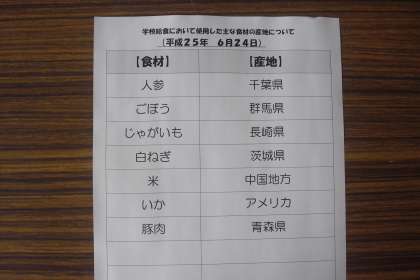 学校給食において使用した主な食材の産地について
(平成25年 6月24日)
【食材】 【産地】
人参 千葉県
ごぼう 群馬県
じゃがいも 長崎県
白ねぎ 茨城県
米 中国地方
いか アメリカ
豚肉 青森県